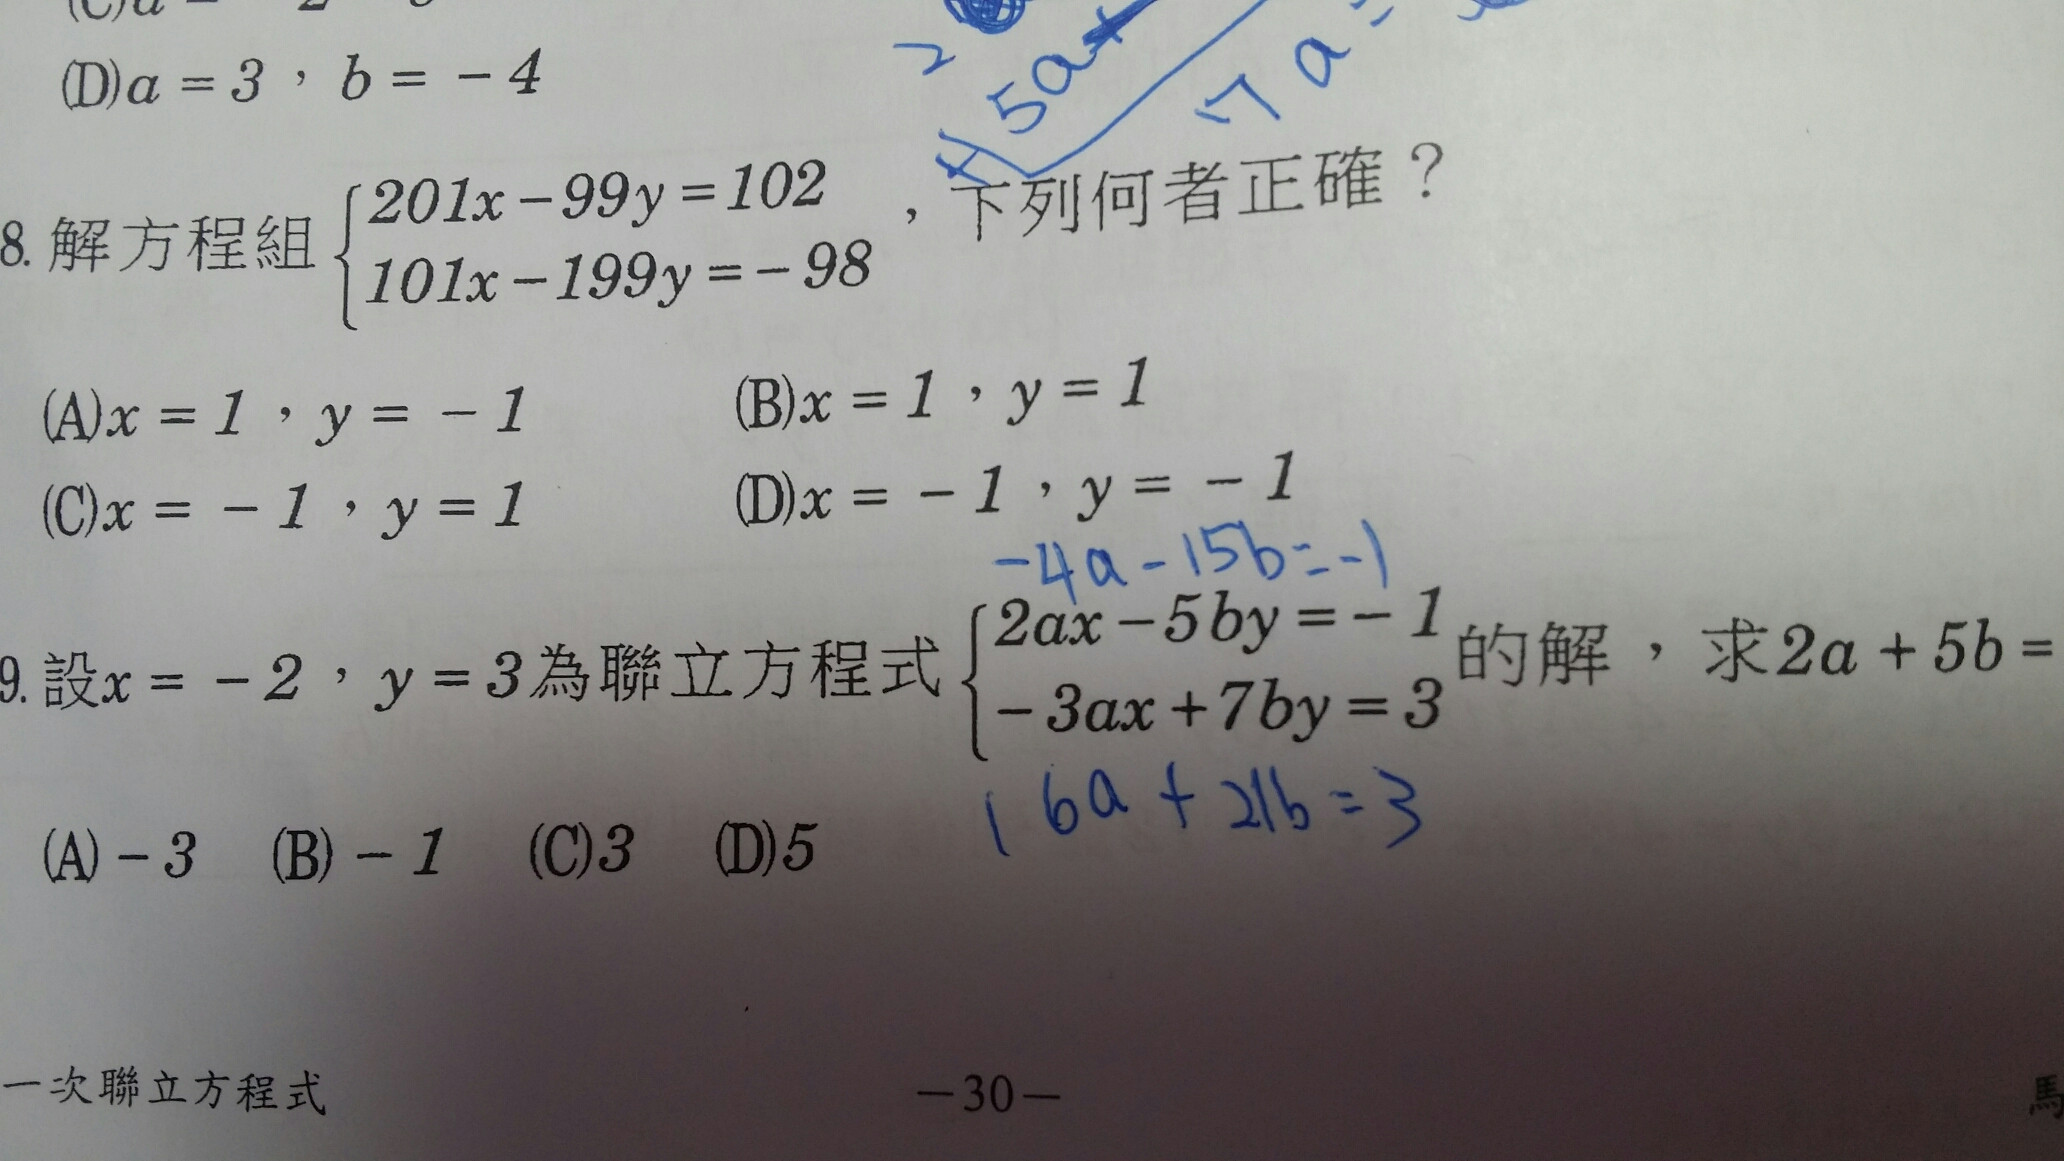 (D)a = 3 , b = - 4
2
5a+
7a=
8. 解方程組 { 201x - 99y = 102 , 下列何者正確?
101x - 199y = - 98
(A)x = 1 , y = - 1 (B)x = 1 , y = 1
(C)x = - 1 , y = 1 (D)x = - 1 , y = - 1
-4a-15b=-1
9. 設x = - 2 , y = 3為聯立方程式 { 2ax - 5by = - 1 的解 , 求2a + 5b =
- 3ax + 7by = 3
6a + 21b = 3
(A) - 3 (B) - 1 (C)3 (D)5
一次聯立方程式 -30- 馬